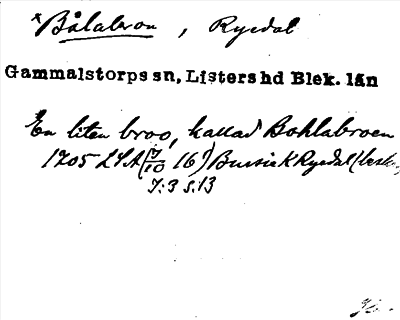 *Bålabron, Ryedal
Gammalstorps sn, Listers hd Blek. län
En liten broo, kallad Bohlabroen
1705 LSA (7/10 16?) Bursie K Ryedal (besk.
7:3 s. 13